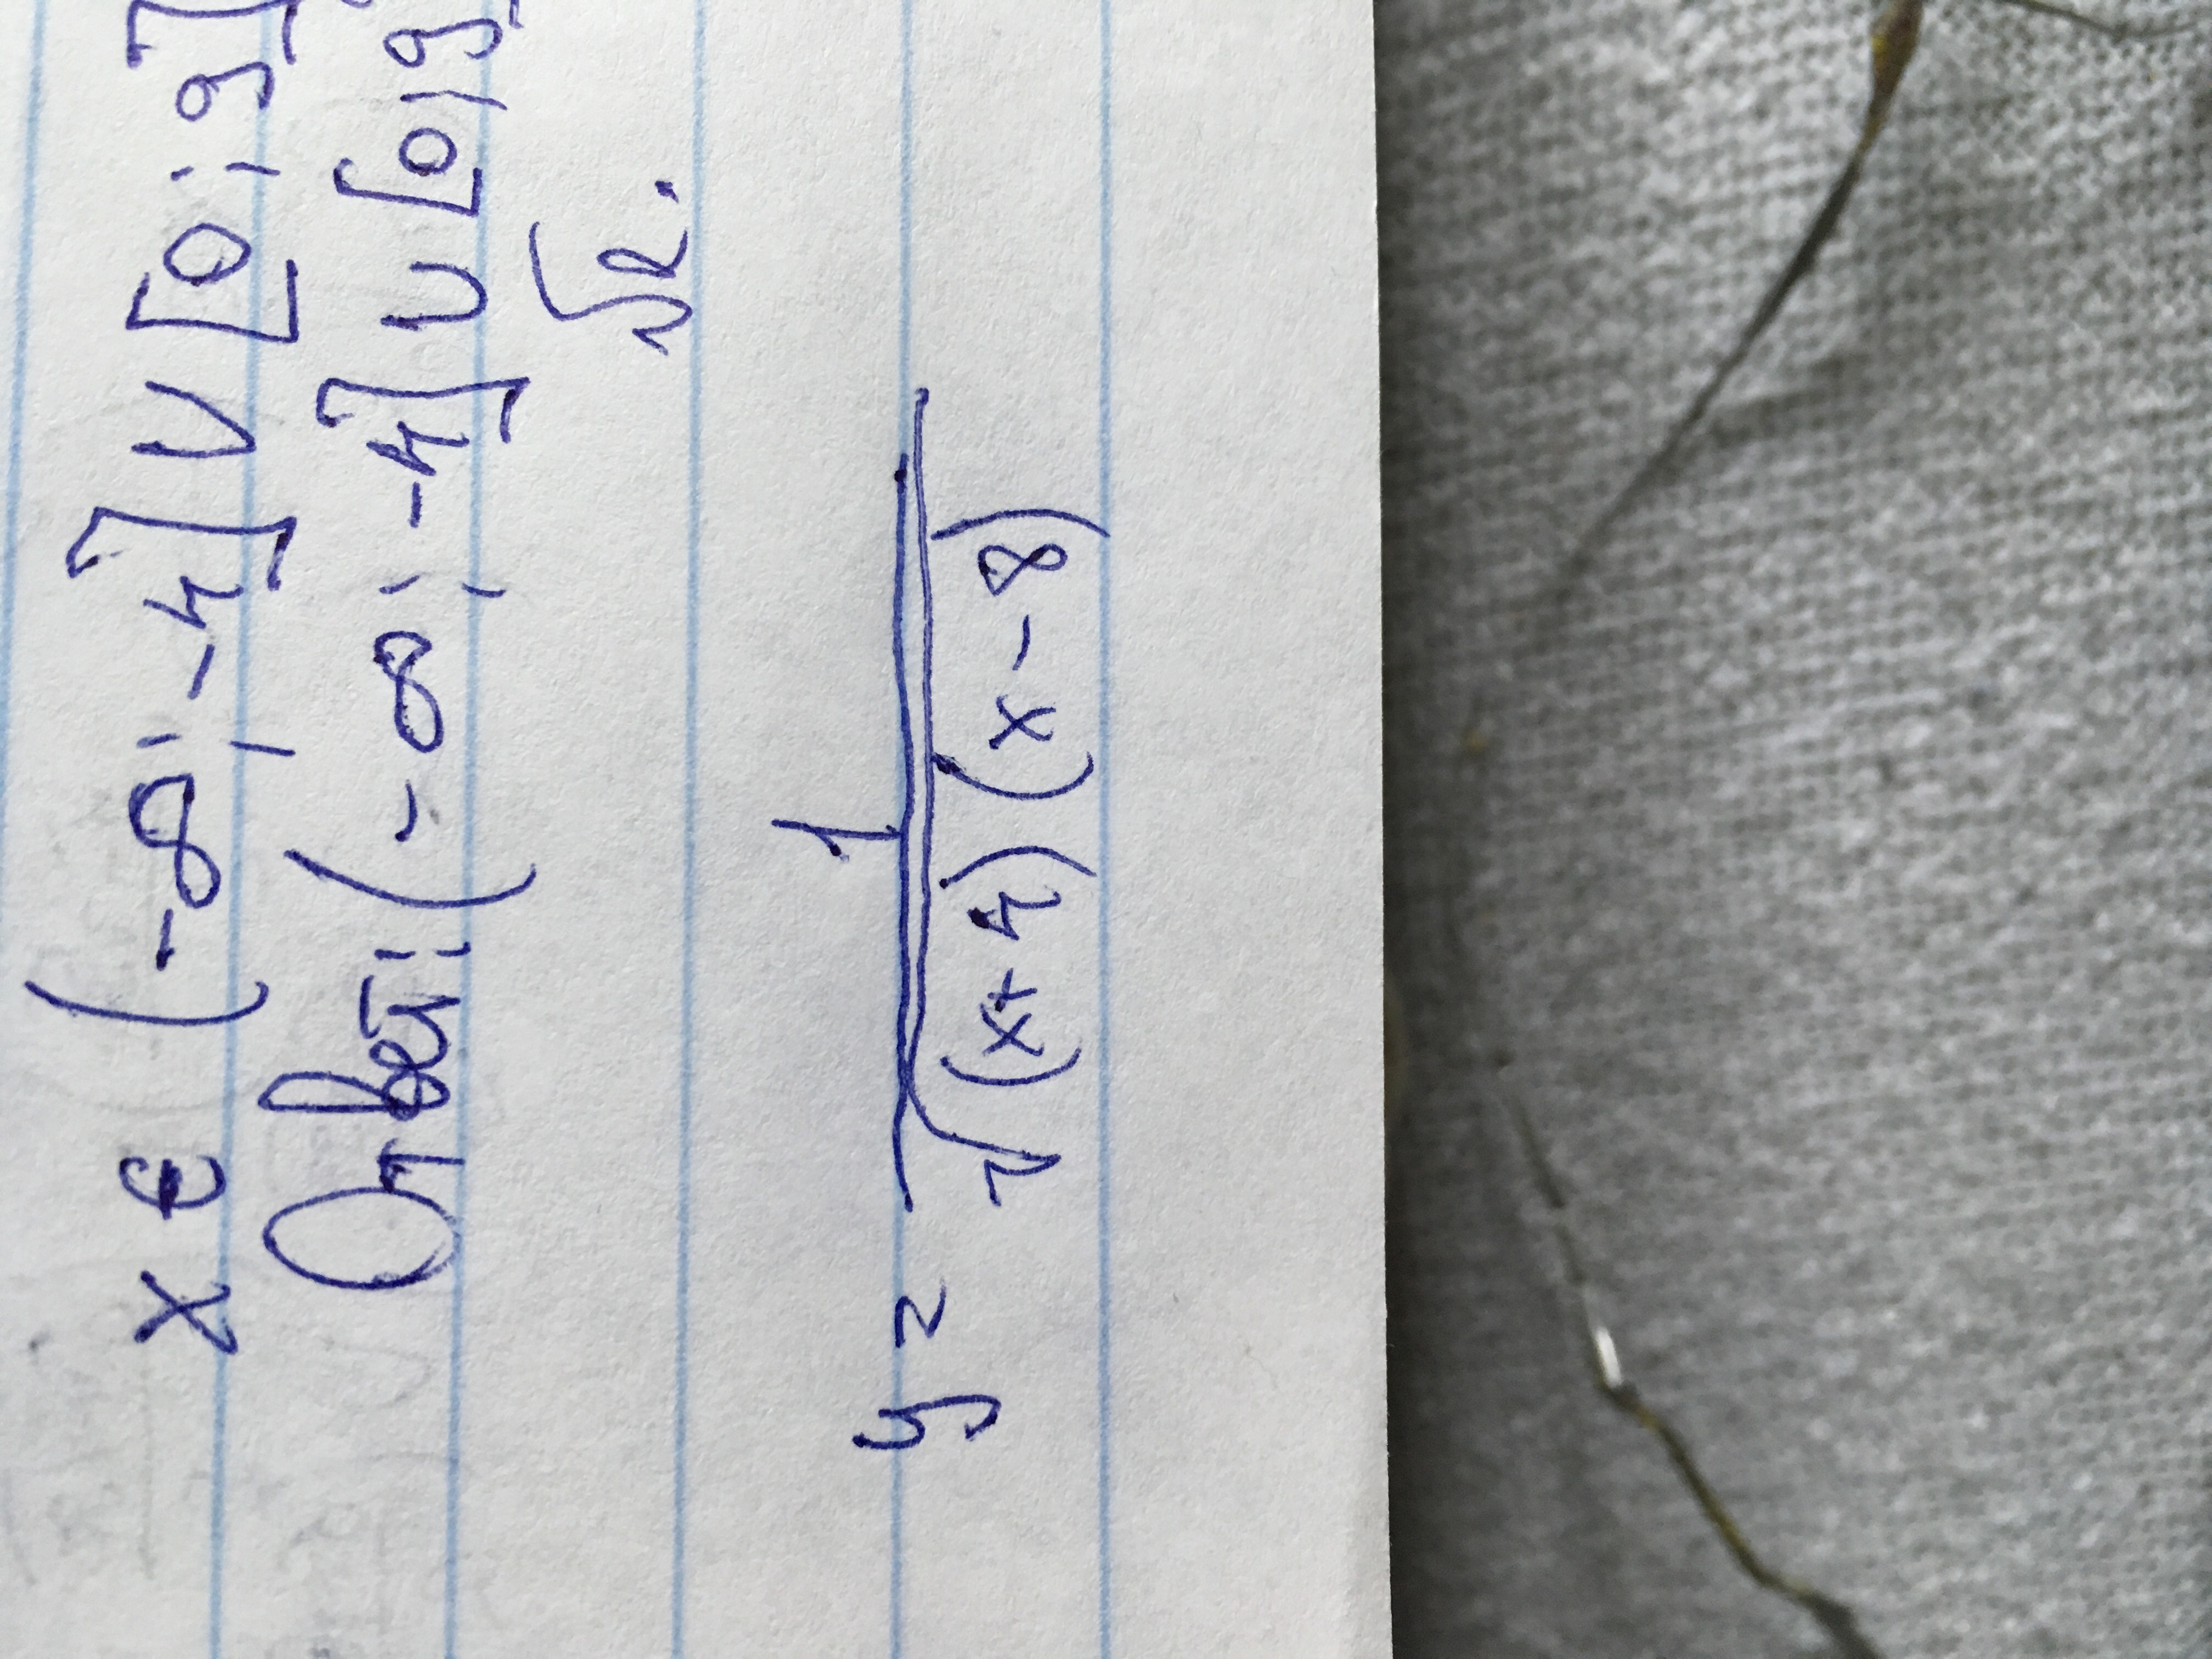 x ∈ (-∞; -4] ∪ [0; 9]
Ответ: (-∞; -4] ∪ [0; 9
√2.
1
y = ─────────────
√(x+4)(x-8)